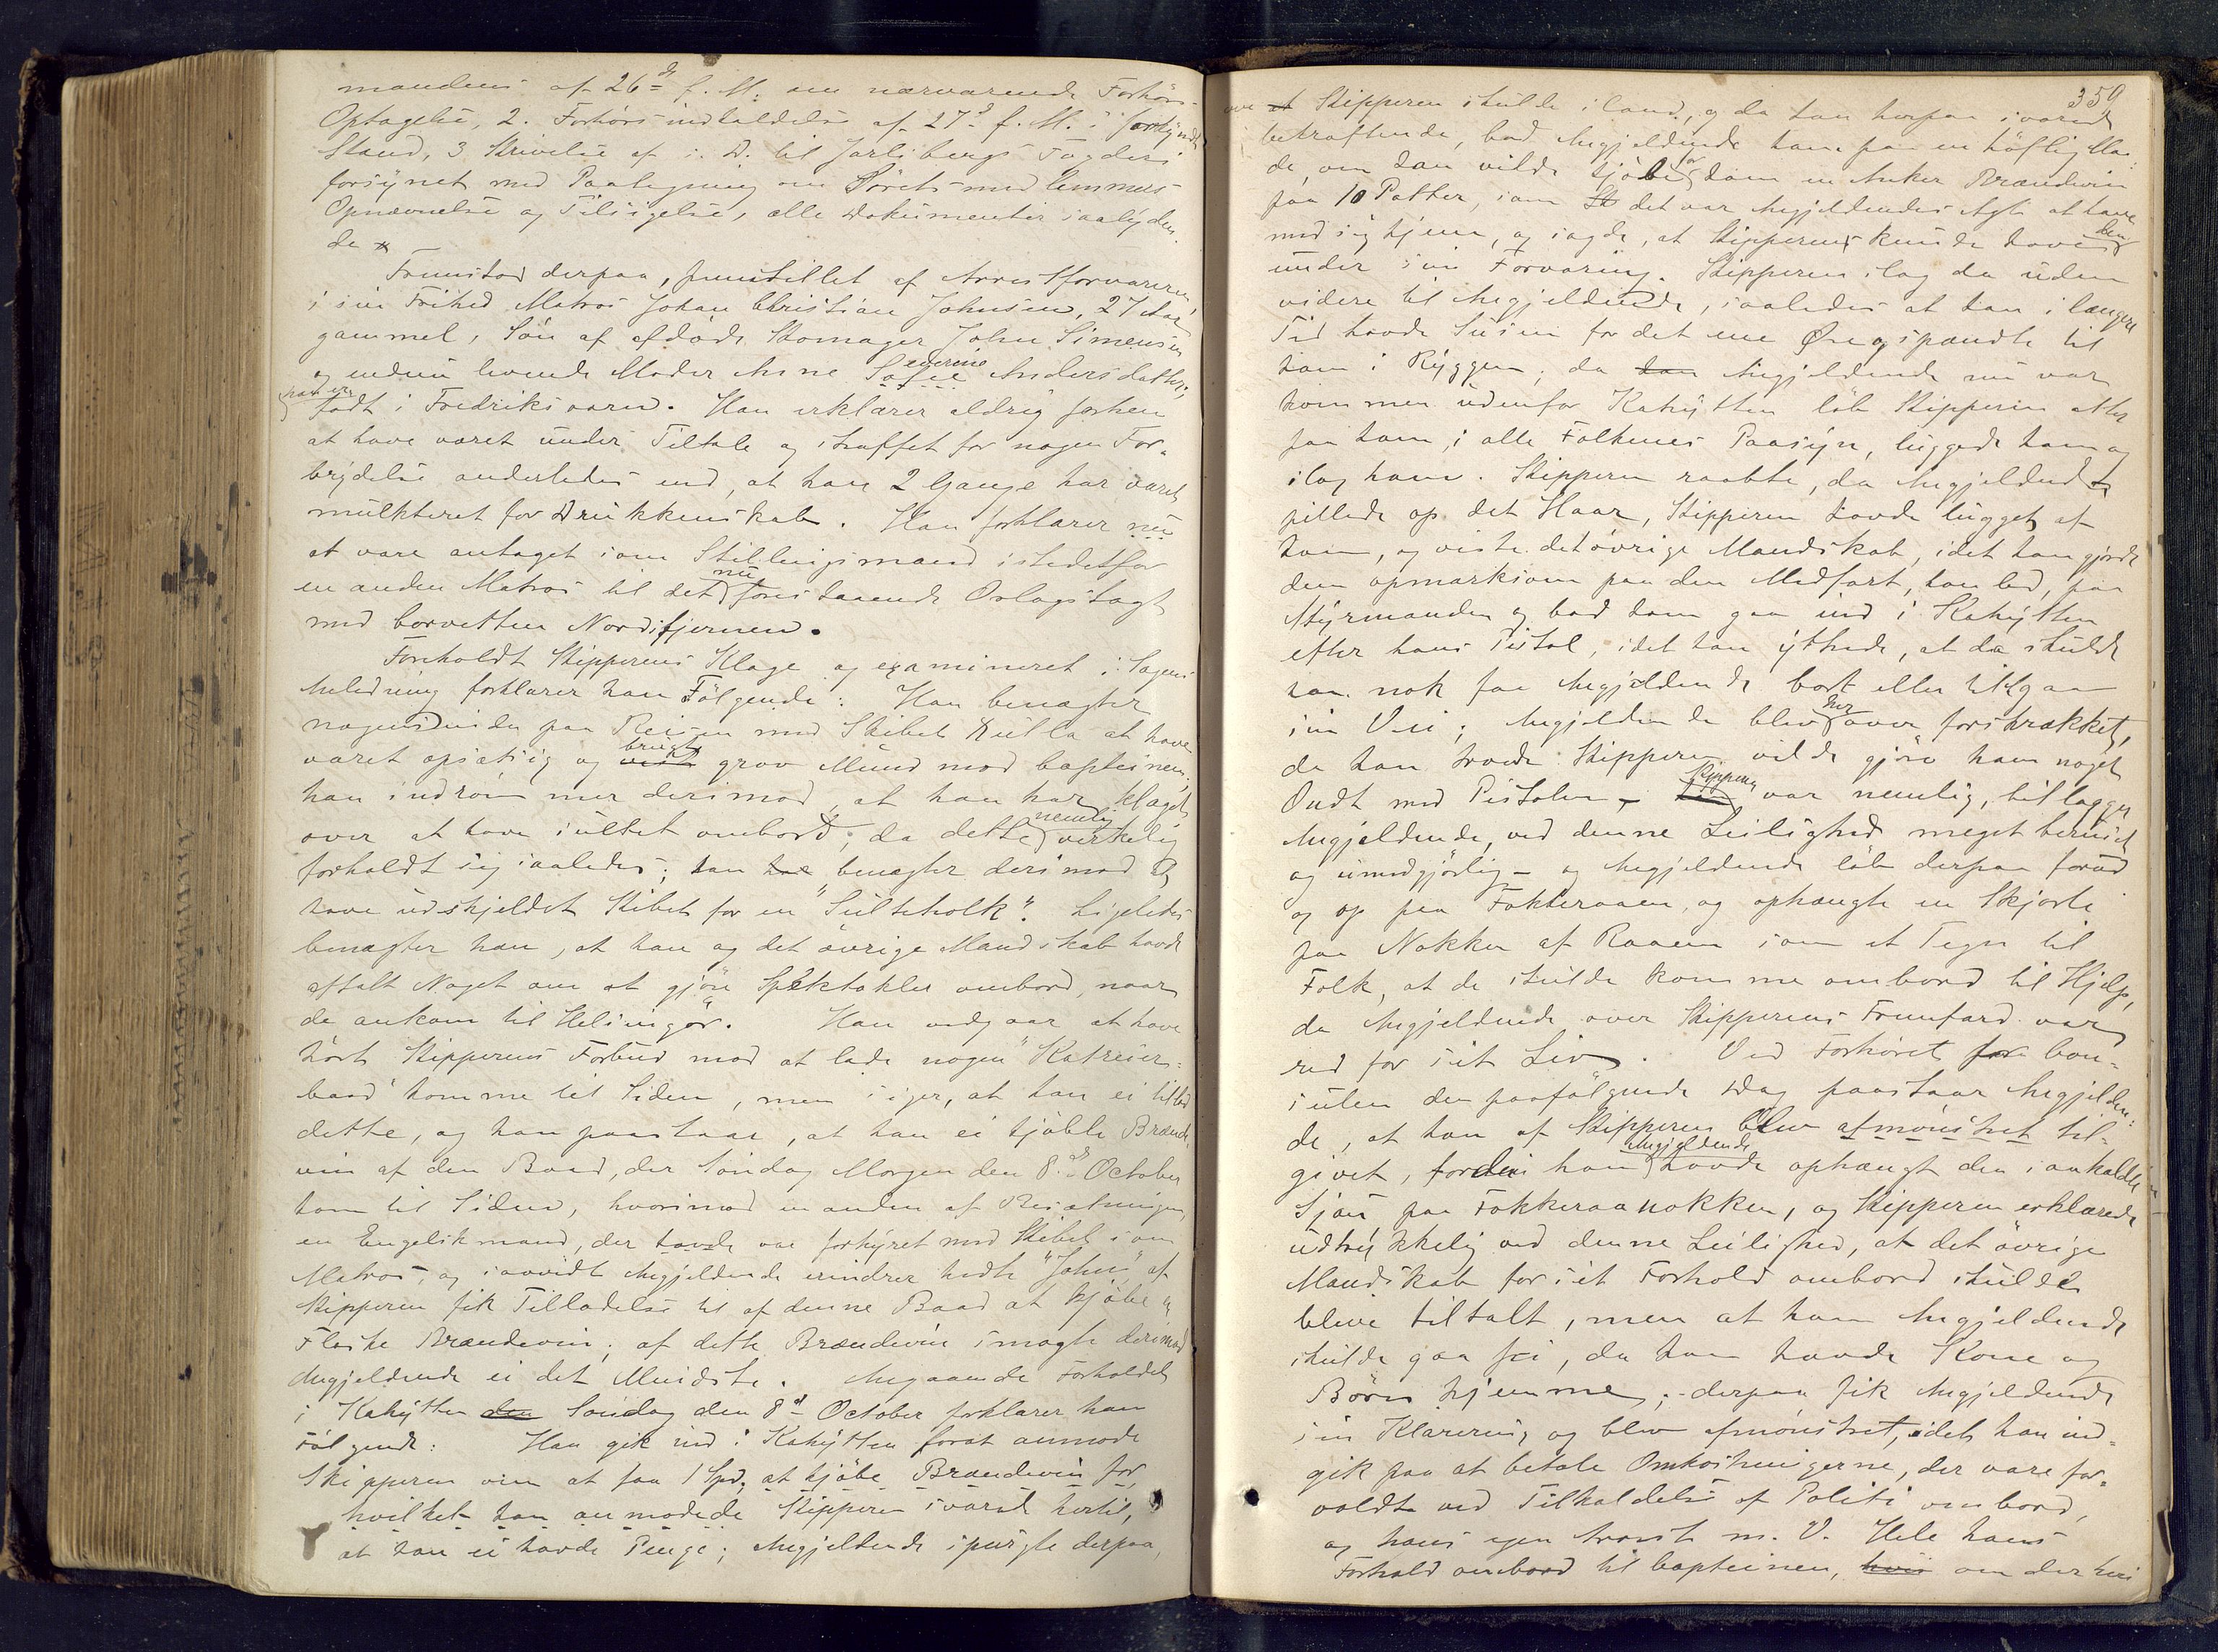 mandens af 26de f. M. om nærværende Forhørs
Optagelse, 2. Forhørsindkaldelse af 27d f. M. i forkyndt
Stand, 3 Skrivelse af s. D. til Jarlsbergs Fogderi
forsynet med Paategning om
Opnævnelse og Tilsigelse, alle Dokumenter saalyden-
de
Fremstod derpaa, fremstillet af Arrestforvareren,
i sin Frihed Matros Johan Christian Johnsen, 27 Aar
gammel, Søn af afdøde Skomager John Simensen
og endnu levende Moder Anne Severine Andersdatter;
han er født i Fredriksværn. Han erklærer aldrig forhen
at have været under Tiltale og straffet for nogen For-
brydelse anderledes end, at han 2 Gange har været
mulkteret for Drukkenskab. Han forklarer nu
at være antaget som Stillingsmand istedetfor
en anden Matros til det nu forestaaende Orlogstogt
med Corvetten Nordstjernen.
Foreholdt Skipperens Klage og examineret i Sagens
Anledning forklarer han Følgende: Han benægter
nogensinde paa Reisen med Skibet at have
været opsætsig og brugt grov Mund mod Capteinen;
han indrømmer derimod, at han har klaget
over at have sultet ombord, da dette nemlig virkelig
forholdt sig saaledes; han har benægter derimod at
have udskjeldet Skibet for en "Sulteholk". Ligeledes
benægter han, at han og det øvrige Mandskab havde
aftalt Noget om at gjøre Spektakler ombord, naar
de ankom til Helsingør. Han vedgaar at have
hørt Skipperens Forbud mod at lade nogen "Katreier-
baad" komme til Siden, men siger, at han ei tillod
dette, og han paastaar, at han ei kjøbte Brænde-
vin af den Baad, der Søndag Morgen den 8de October
kom til Siden, hvorimod en anden af Besætningen,
en Engelskmand, der havde var forhyret med Skibet som
Matros, og saavidt Angjeldende erindrer hedte "John" af
Skipperen fik Tilladelse til af denne Baad at kjøbe en
Flaske Brændevin; af dette Brændevin smagte derimod
Angjeldende ei det Mindste. Angaaende Forholdet
i Kahytten den Søndag den 8de October forklarer han
Følgende: Han gik ind i Kahytten forat anmode
Skipperen om at faa 1 Spd. at kjøbe Brændevin for,
hvilket han anmodede Skipperen svarede hertil,
at han ei havde Penge; Angjeldende spurgte derpaa,
359
om at Skipperen skulde iland, og da han herpaa svarede
bekræftende, bad Angjeldende ham paa en høflig Maa-
de, om han vilde kjøbe for ham en Anker Brændevin
paa 10 Potter, som det var Angjeldendes Agt at have
med sig hjem, og sagde, at Skipperen kunde have den
under sin Forvaring. Skipperen slog da uden
videre til Angjeldende, saaledes at han i længere
Tid havde Susen for det ene Øre og spændte til
ham i Ryggen; da han Angjeldende nu var
kommen udenfor Kahytten løb Skipperen atter
paa ham, i alle Folkenes Paasyn, luggede ham og
slog ham. Skipperen raabte, da Angjeldende
pillede op det Haar, Skipperen havde lugget af
ham, og viste det øvrige Mandskab, idet han gjorde
dem opmærksom paa den Medfart, han led, paa
Styrmanden og bad ham gaa ind i Kahytten
efter hans Pistol, idet han yttrede, at da skulde
han nok faa Angjeldende bort eller til at gaa
sin Vei; Angjeldende blev her over forskrækket,
da han troede Skipperen vilde gjøre ham noget
Ondt med Pistolen, – Skipperen var nemlig, tillægger
Angjeldende, ved denne Leilighed meget beruset
og umedgjørlig – og Angjeldende løb derpaa forud
og op paa Fokkeraaen, og ophængte en Skjorte
paa Nokken af Raaen som et Tegn til
Folk, at de skulde komme ombord til Hjelp,
da Angjeldende over Skipperens Fremfærd var
ræd for sit Liv. Ved Forhøret for Con-
sulen den paafølgende Dag paastaar Angjelden-
de, at han af Skipperen blev afmønstret til-
givet, fordi han Angjeldende havde ophængt den saakaldte
Sjau paa Fokkeraanokken, og Skipperen erklærede
udtrykkelig ved denne Leilighed, at det øvrige
Mandskab for sit Forhold ombord skulde
bleve tiltalt, men at ham Angjeldende
skulde gaa fri, da han havde Kone og
Børn hjemme; derpaa fik Angjeldende
sin Klarering og blev afmønstret, idet han ind-
gik paa at betale Omkostningerne, der vare for-
voldte ved Tilkaldelse af Politi ombord,
og hans egen Arrest m. V. Hele hans
Forhold ombord til Capteinen, hvis om der hos